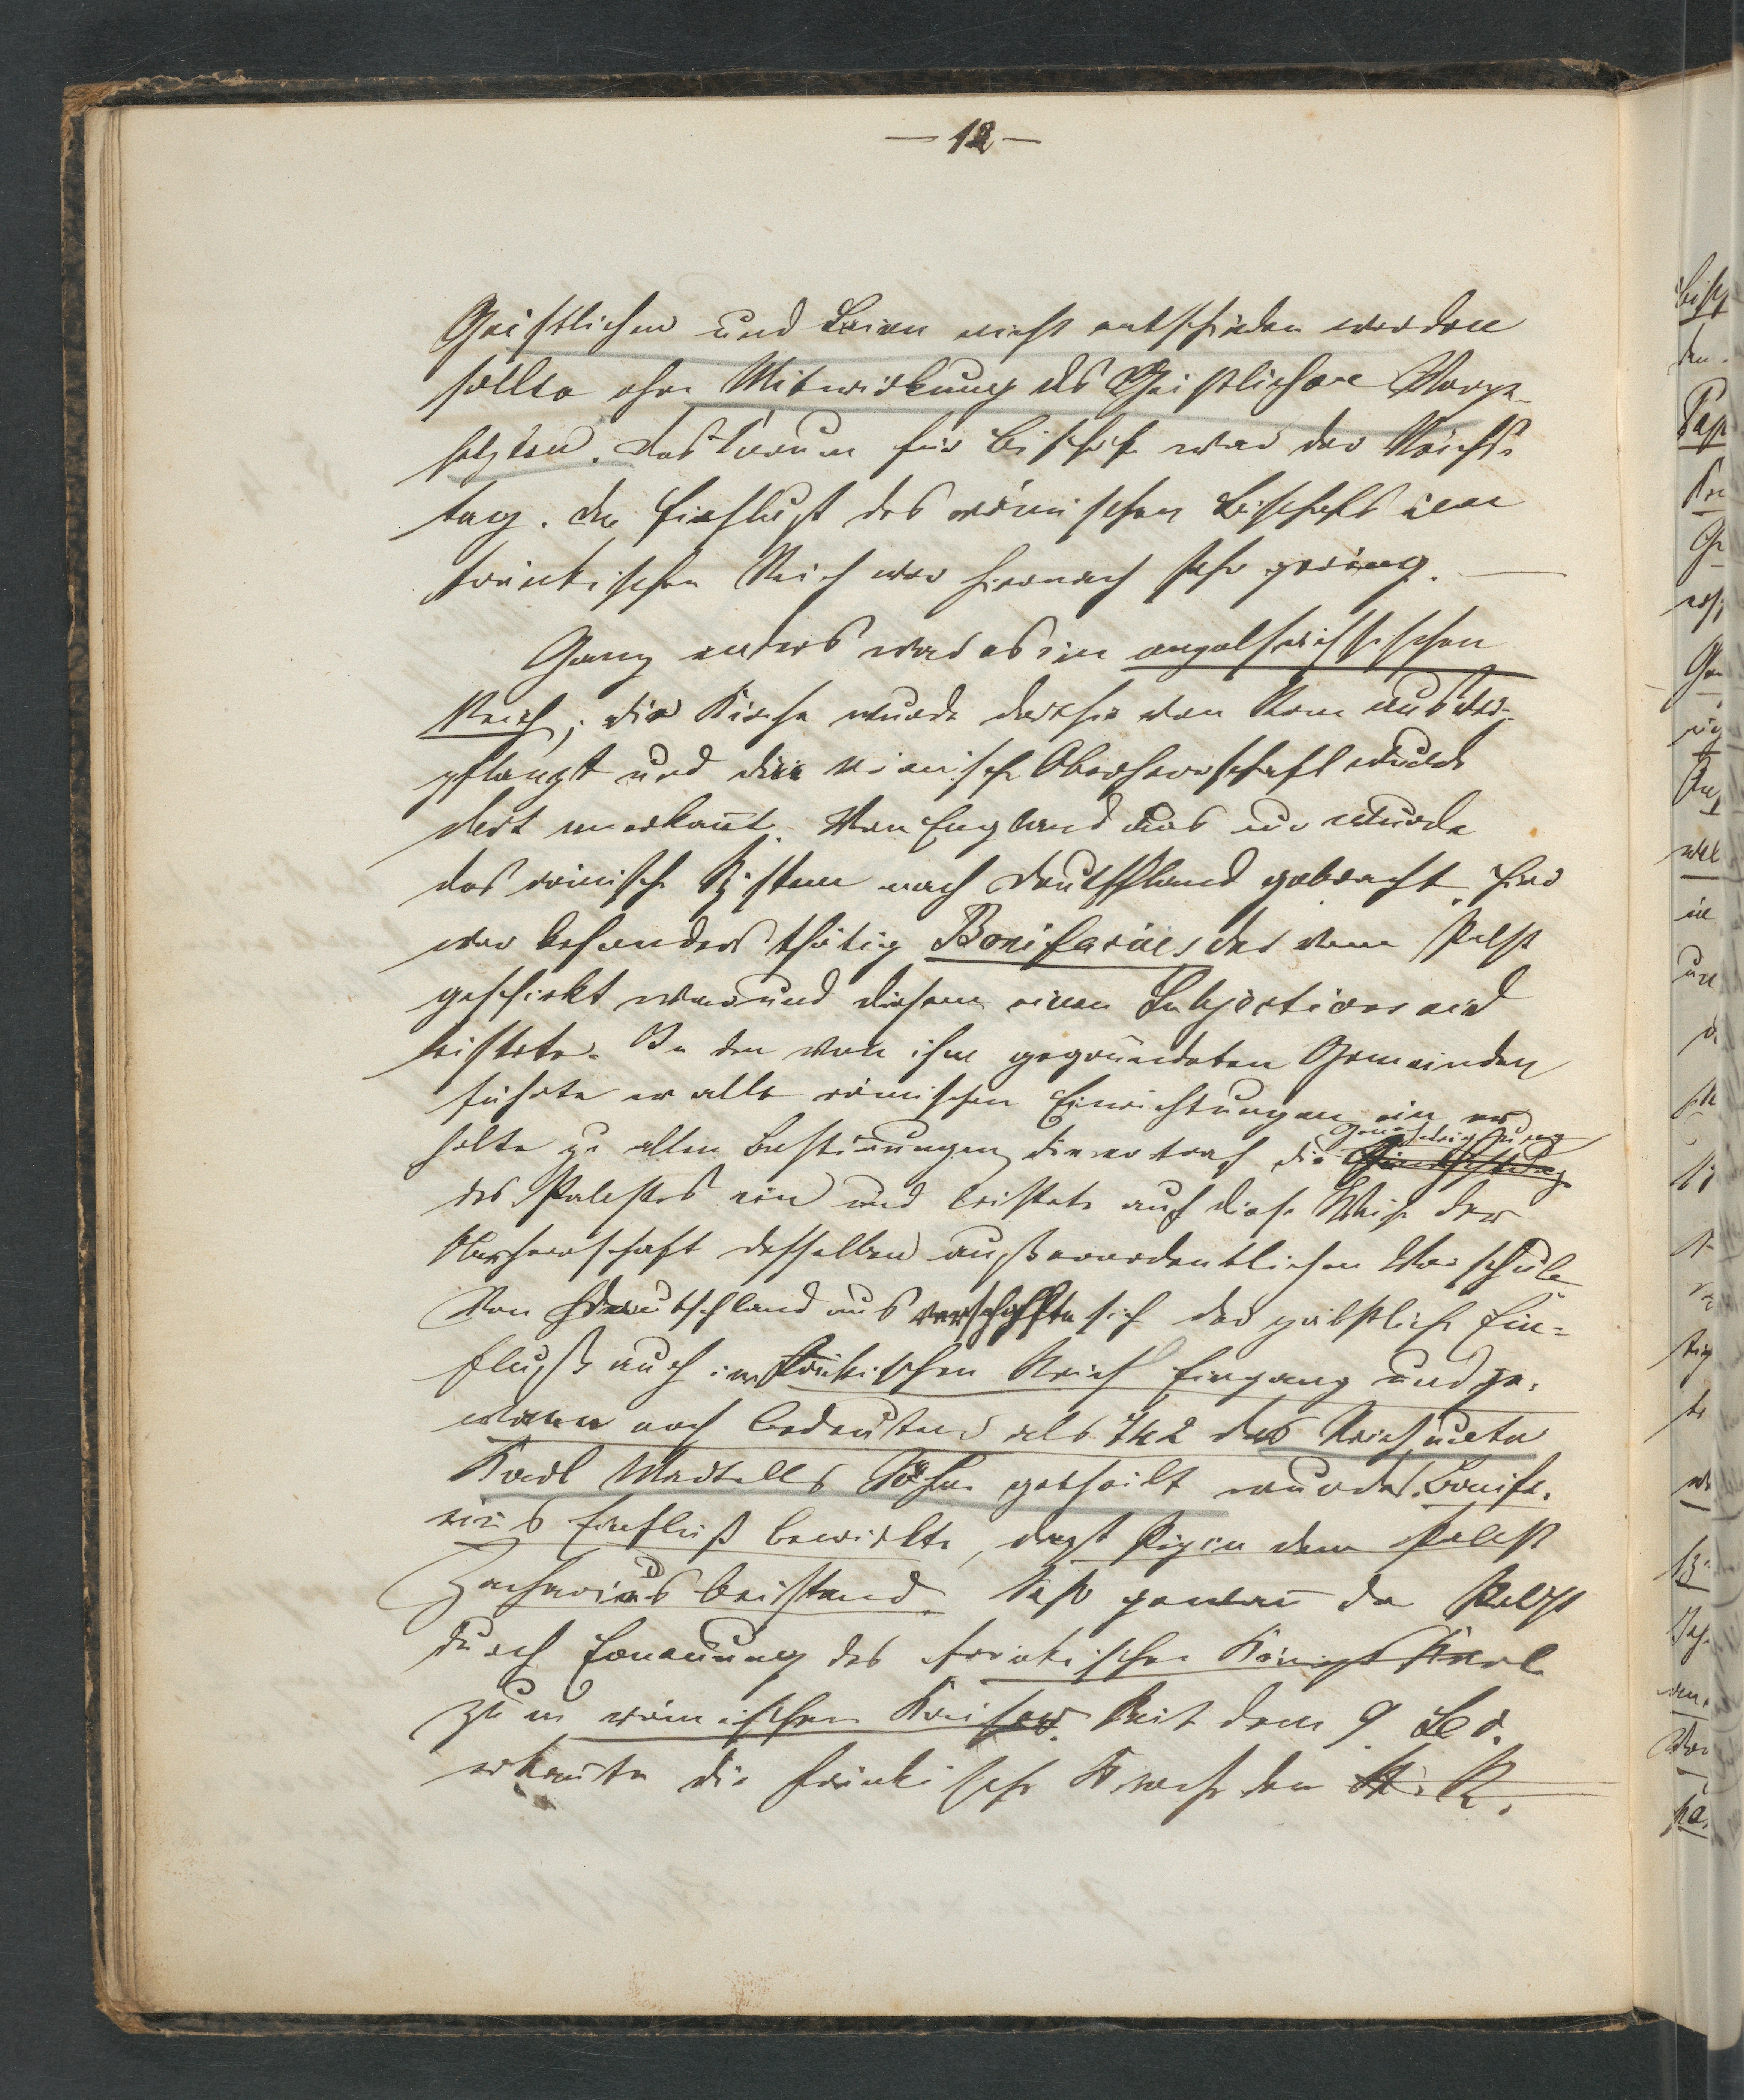 — 12 —
Geistlichen und Laien nicht entschieden werden
sollte ohne Mitwirkung des Geistlichen Vorge-
setzten. Das Forum für Bischöfe war der Reichs-
tag. Der Einflußt des römischen Bischofs im
fränkischen Reich war hiernach sehr gering. —
Ganz anders war es im angelsächsischen
Reich; die Kirche wurde dorthin von Rom aus ver-
pflanzt und die römische Oberherrschaft wurde
dort anerkannt. Von England aus nur wurde
das römische System nach Deutschland gebracht. Hier
war besonders thätig Bonifacius der vom Pabst
geschickt war und diesem einen Subjectionseid
leistete. In den von ihm gegründeten Gemeinden
führte er alle römischen Einrichtungen ein er
holte zu allen Bestimungen die er traf die Genehmigung
des Pabstes ein und leistete auf diese Weise der
Oberherrschaft desselben außerordentlichen Vorschub
Von Deutschland aus verschaffte sich der päbstliche Ein-
fluß auch im fränkischen Reich Eingang und ge-
wann noch bedeutend als 742 das Reich unter
Karl Martells Söhne getheilt wurde. Bonifa-
cius Einfluß bewirkte, daß Pipin dem Pabst
Zacharias beistand. Sehr gewann der Pabst
durch Ernennung des fränkischen Königs Karl
zum römischen Kaiser. Seit dem 9 Sec.
erkannte die fränkische Kirche den R.